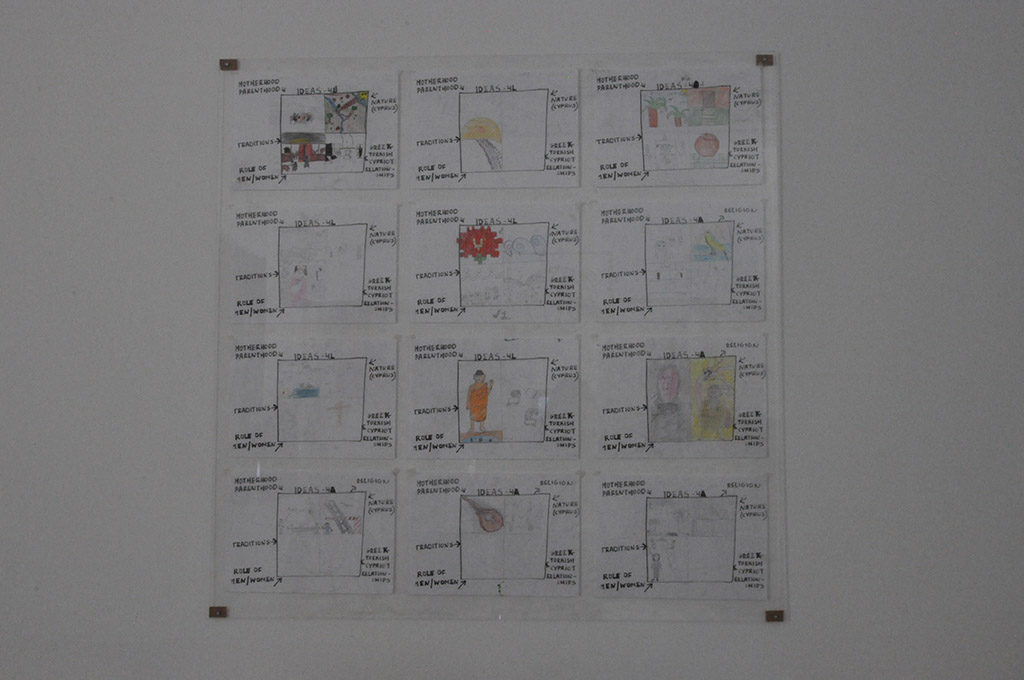 MOTHERHOOD
PARENTHOOD
IDEAS-4
NATURE
(CYPRUS)
TRADITIONS
GREEK
TURKISH
CYPRIOT
RELATION-
SHIPS
ROLE OF
MEN/WOMEN
MOTHERHOOD
PARENTHOOD
IDEAS-4L
NATURE
(CYPRUS)
TRADITIONS
GREEK
TURKISH
CYPRIOT
RELATION-
SHIPS
ROLE OF
MEN/WOMEN
MOTHERHOOD
PARENTHOOD
IDEAS-4
NATURE
(CYPRUS)
TRADITIONS
GREEK
TURKISH
CYPRIOT
RELATION-
SHIPS
ROLE OF
MEN/WOMEN
MOTHERHOOD
PARENTHOOD
IDEAS-4L
NATURE
(CYPRUS)
TRADITIONS
GREEK
TURKISH
CYPRIOT
RELATION-
SHIPS
ROLE OF
MEN/WOMEN
MOTHERHOOD
PARENTHOOD
IDEAS-4L
NATURE
(CYPRUS)
TRADITIONS
GREEK
TURKISH
CYPRIOT
RELATION-
SHIPS
ROLE OF
MEN/WOMEN
MOTHERHOOD
PARENTHOOD
IDEAS-4A
RELIGION
NATURE
(CYPRUS)
TRADITIONS
GREEK
TURKISH
CYPRIOT
RELATION-
SHIPS
ROLE OF
MEN/WOMEN
MOTHERHOOD
PARENTHOOD
IDEAS-4L
NATURE
(CYPRUS)
TRADITIONS
GREEK
TURKISH
CYPRIOT
RELATION-
SHIPS
ROLE OF
MEN/WOMEN
MOTHERHOOD
PARENTHOOD
IDEAS-4L
NATURE
(CYPRUS)
TRADITIONS
GREEK
TURKISH
CYPRIOT
RELATION-
SHIPS
ROLE OF
MEN/WOMEN
MOTHERHOOD
PARENTHOOD
IDEAS-4A
RELIGION
NATURE
(CYPRUS)
TRADITIONS
GREEK
TURKISH
CYPRIOT
RELATION-
SHIPS
ROLE OF
MEN/WOMEN
MOTHERHOOD
PARENTHOOD
IDEAS-4A
RELIGION
NATURE
(CYPRUS)
TRADITIONS
GREEK
TURKISH
CYPRIOT
RELATION-
SHIPS
ROLE OF
MEN/WOMEN
MOTHERHOOD
PARENTHOOD
IDEAS-4A
RELIGION
NATURE
(CYPRUS)
TRADITIONS
GREEK
TURKISH
CYPRIOT
RELATION-
SHIPS
ROLE OF
MEN/WOMEN
MOTHERHOOD
PARENTHOOD
IDEAS-4A
RELIGION
NATURE
(CYPRUS)
TRADITIONS
GREEK
TURKISH
CYPRIOT
RELATION-
SHIPS
ROLE OF
MEN/WOMEN